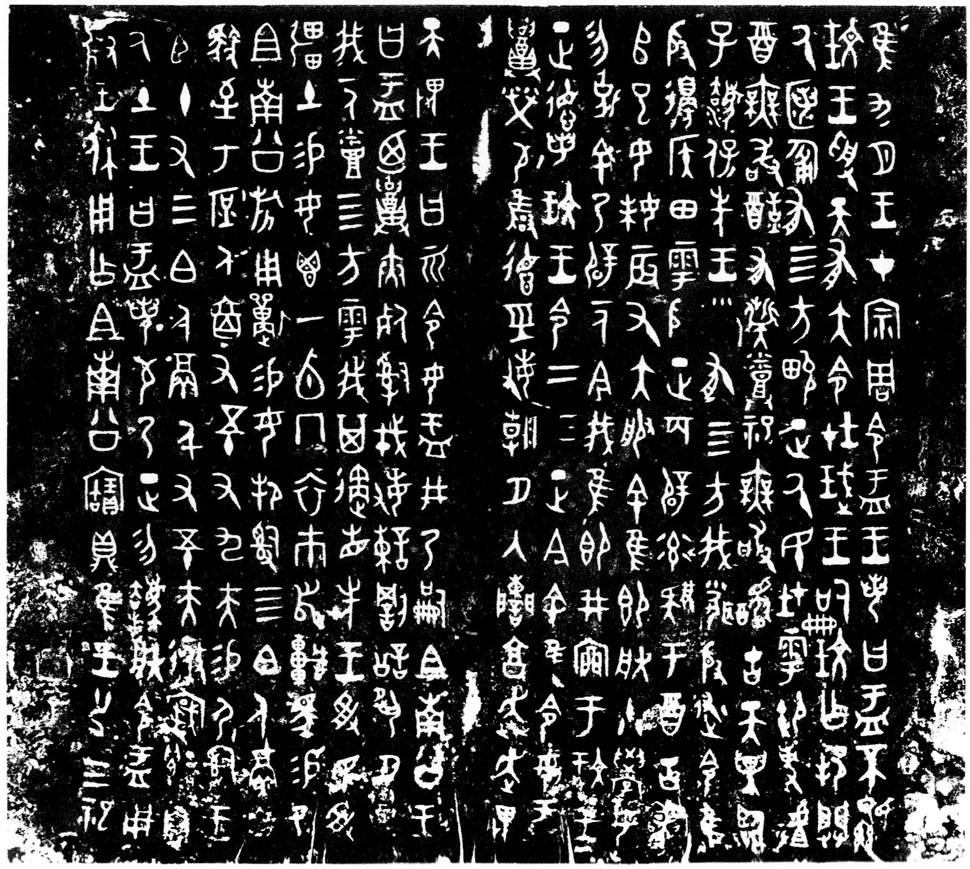 隹九月王才宗周令盂王若曰盂不顯
玟王受天有大令在珷王嗣玟乍邦闢
氒匿匍有四方畯正氒民在雩御事䖒
酉無敢酖有祡烝祀無敢擾古天異臨
子灋保先王有四方我聞殷述令隹
殷邊侯田雩殷正百辟率肄于酉古喪
𠂤已女妹辰又大服余隹即朕小學女
勿余乃辟一人今我隹即井㐭于玟王
正德若玟王令二三正今余隹令女盂
召榮敬雍德巠敏朝夕入讕享奔走畏
天畏王曰而令女盂井乃嗣且南公王
曰盂迺召夾死𤔲戎敏諫罰訟夙夕召
我一人烝四方雩我其遹省先王受民受
疆土易女鬯一卣冂衣巿舄車馬易
乃且南公旂用狩易女邦𤔲四白人鬲自
馭至于庶人六百又五十又九夫易尸𤔲
王臣十又三白人鬲千又五十夫遷自
氒土王曰盂若敬乃正勿灋朕令盂用
對王休用乍且南公寶鼎隹王廿又三祀